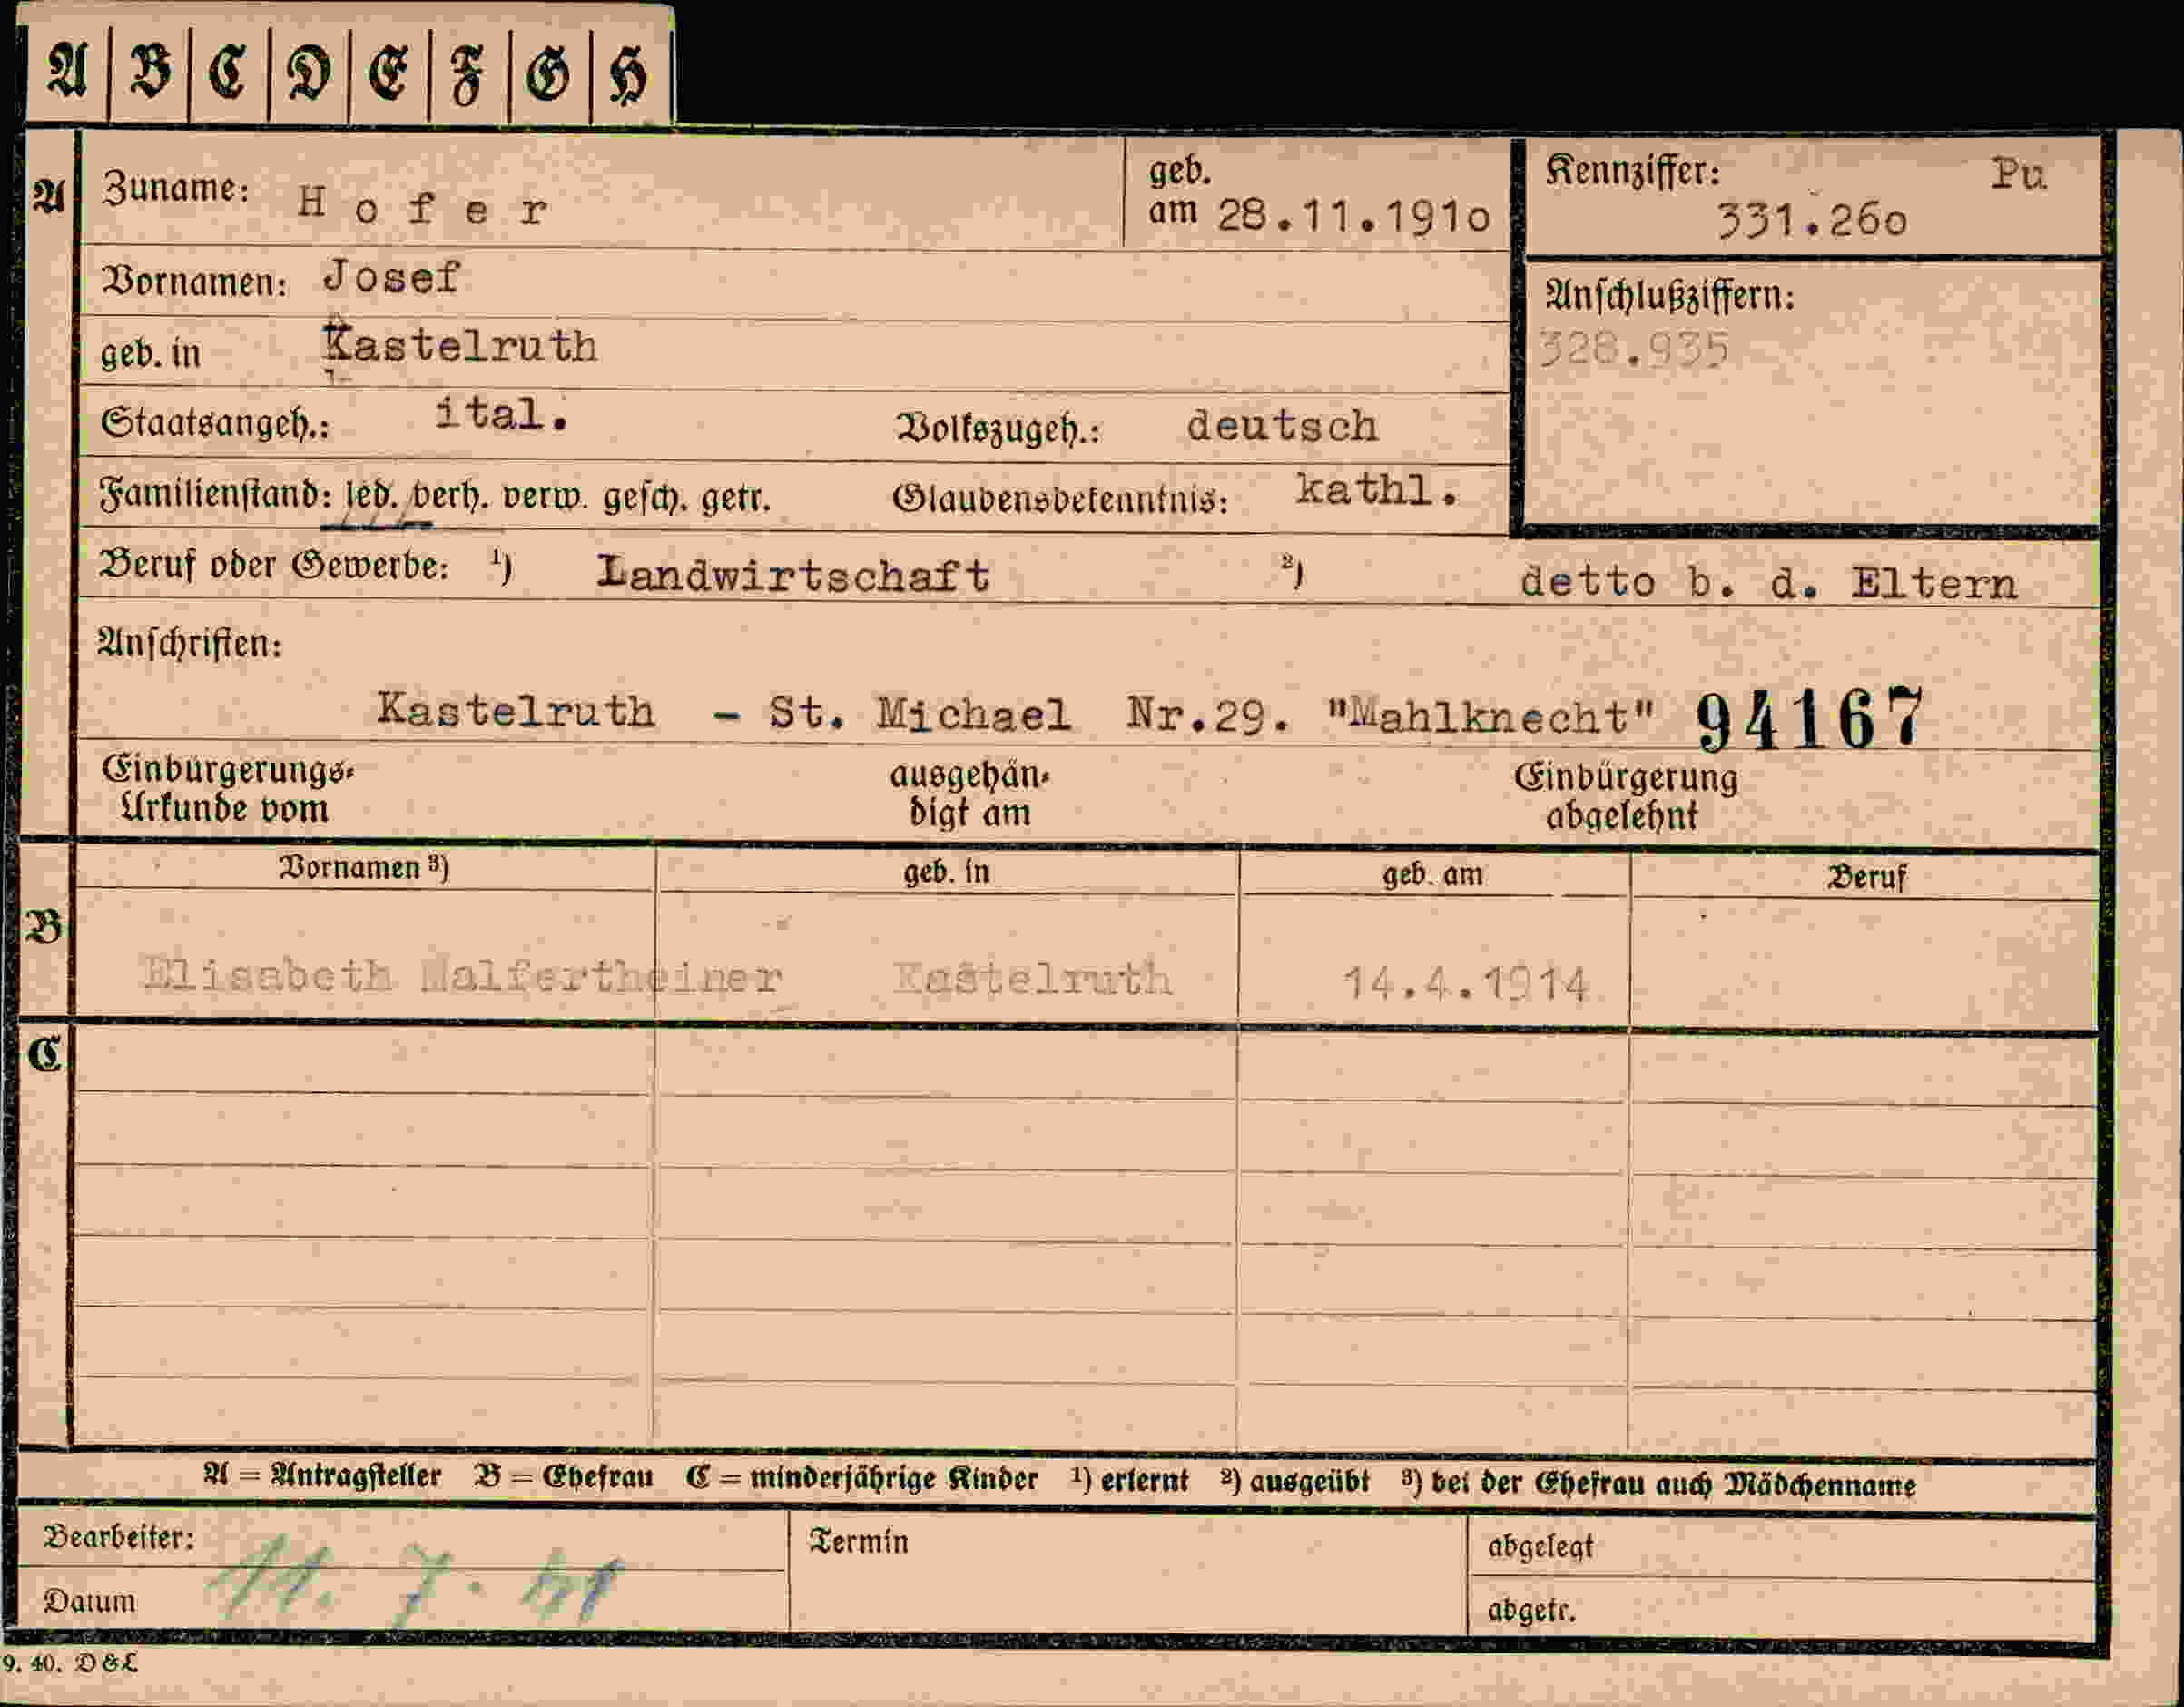 A B C D E F G H
A Zuname: Hofer geb. am 28.11.1910 Kennziffer: Pu 331.260
Vornamen: Josef
Anschlußziffern:
geb. in Kastelruth 328.935
Staatsangeh.: ital. Volkszugeh.: deutsch
Familienstand: led. verh. verw. gesch. getr. Glaubensbekenntnis: kathl.
Beruf oder Gewerbe: ¹) Landwirtschaft ²) detto b. d. Eltern
Anschriften:
Kastelruth - St. Michael Nr.29. "Mahlknecht" 94167
Einbürgerungs- ausgehän- Einbürgerung
Urkunde vom digt am abgelehnt
Vornamen ³) geb. in geb. am Beruf
B
Elisabeth Malfertheiner Kastelruth 14.4.1914
C
A = Antragsteller B = Ehefrau C = minderjährige Kinder ¹) erlernt ²) ausgeübt ³) bei der Ehefrau auch Mädchenname
Bearbeiter: Termin abgelegt
Datum 11. 7. 41 abgetr.
9. 40. D&L